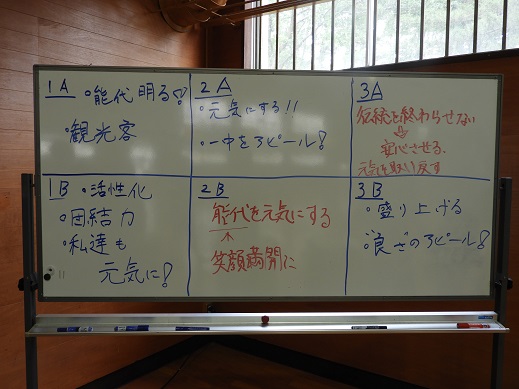 1A
・能代 明るく!
・観光客
2A
・元気にする!!
・一中をアピール!
3A
伝統を終わらせない
⇩
安心させる。
元気を取り戻す
1B
・活性化
・団結力
・私達も
元気に!
2B
能代を元気にする
↑
笑顔満開に
3B
・盛り上げる
・良さのアピール!